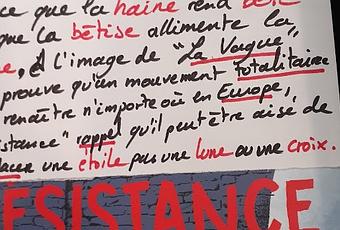 ce que la haine rend
que la bêtise alimente la
à l'image de "La Vague",
prouve qu'un mouvement totalitaire
renaître n'importe où en Europe,
istance" rappel qu'il peut être aisé de
lacer une étoile pas une lune ou une croix.
ESISTANCE